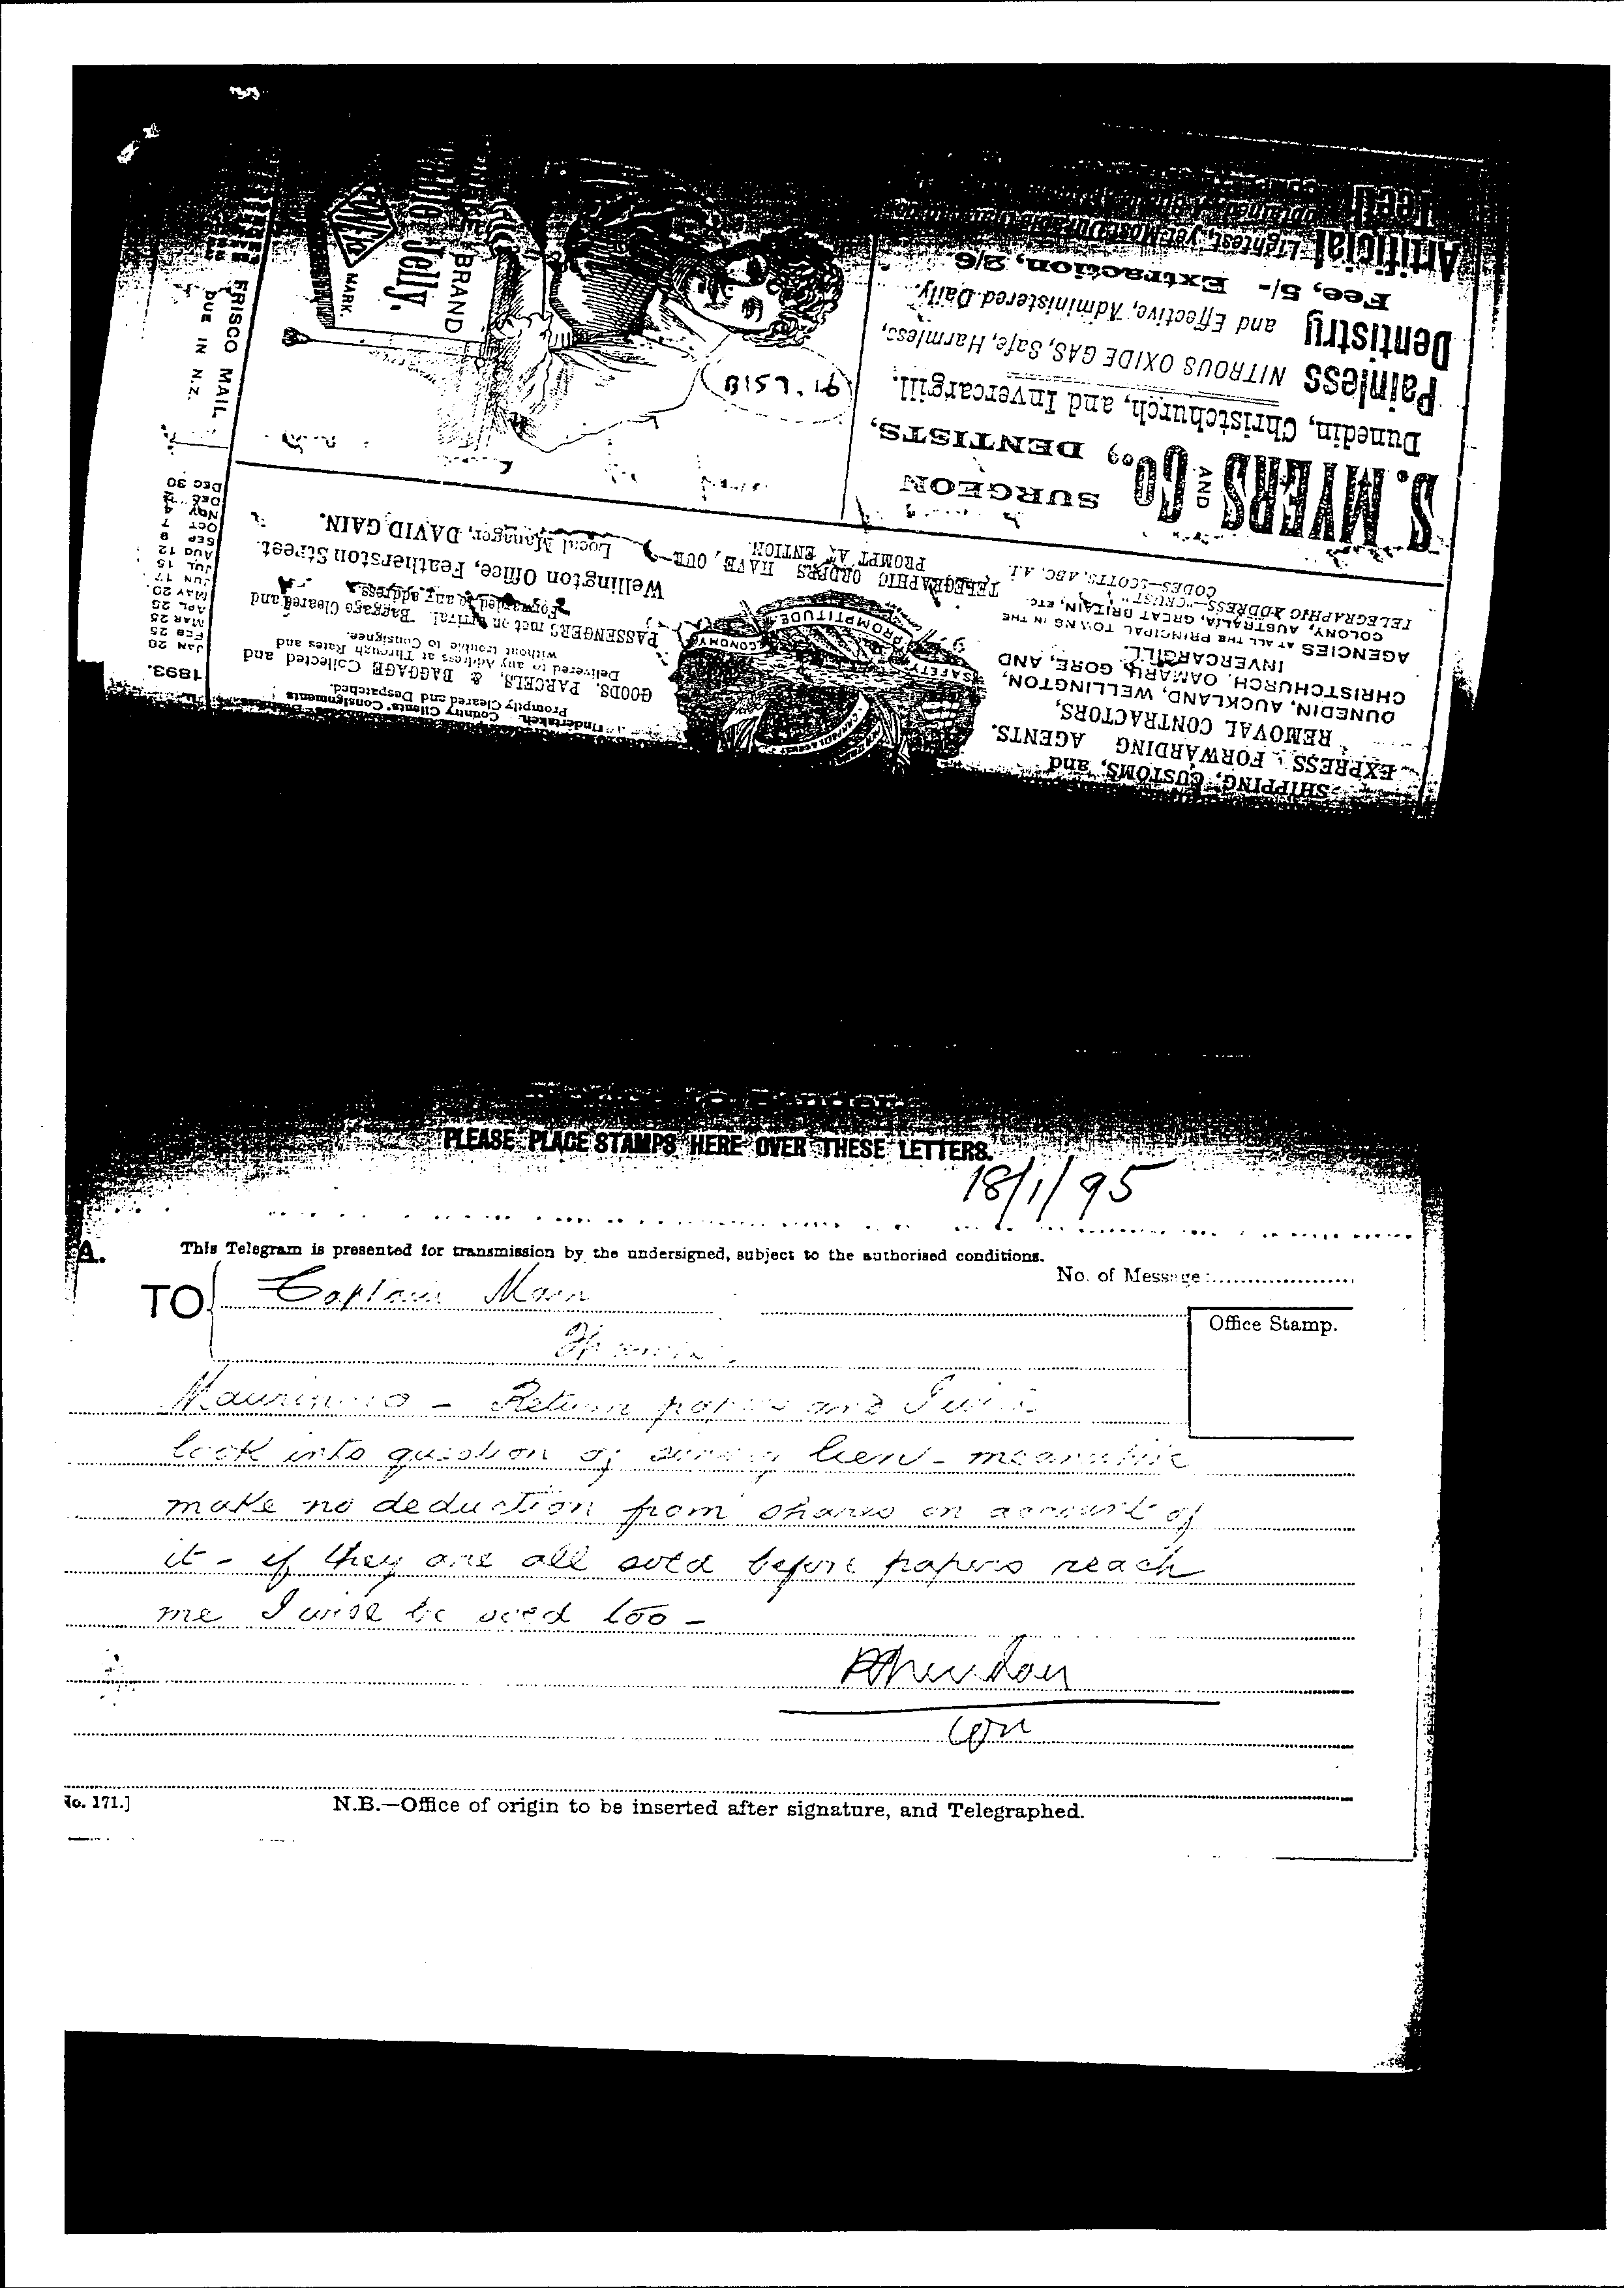 SHIPPING, CUSTOMS, and
EXPRESS FORWARDING AGENTS.
REMOVAL CONTRACTORS,
DUNEDIN, AUCKLAND, WELLINGTON,
CHRISTCHURCH, OAMARU, GORE, AND
INVERCARGILL.
AGENCIES AT ALL THE PRINCIPAL TOWNS IN THE
COLONY, AUSTRALIA, GREAT BRITAIN, ETC.
TELEGRAPHIC ADDRESS—"CRUST"
CODES—SCOTTS, ABC, A.I.
ECONOMY
PROMPTITUDE
SAFETY
Undertaken. Country Clients' Consignments
Promptly Cleared and Despatched.
GOODS, PARCELS, & BAGGAGE Collected and
Delivered to any Address at Through Rates and
without trouble to Consignee.
PASSENGERS met on arrival. Baggage Cleared and
Forwarded to any address.
Wellington Office, Featherston Street.
Local Manager, DAVID GAIN.
TELEGRAPHIC ORDERS HAVE OUR
PROMPT ATTENTION.
S. MYERS AND Co., SURGEON DENTISTS,
Dunedin, Christchurch, and Invercargill.
Painless Dentistry
NITROUS OXIDE GAS, Safe, Harmless,
and Effective, Administered Daily.
Fee, 5/- Extraction, 2/6.
Artificial Teeth
Lightest, yet Most Durable
BRAND
Jelly.
MARK.
FRISCO MAIL
DUE IN N.Z.
1893.
JAN 28
FEB 25
MAR 25
APL 25
MAY 20
JUN 17
JUL 15
AUG 12
SEP 9
OCT 7
NOV 4
DEC 2
DEC 30
PLEASE PLACE STAMPS HERE OVER THESE LETTERS.
18/1/95
A.
This Telegram is presented for transmission by the undersigned, subject to the authorised conditions.
No. of Message:
TO Captain Mair
Office Stamp.
Return papers and I will
look into question of survey lien - meanwhile
make no deduction from shares on account of
it - if they are all sued before papers reach
me I will be sued too -
N.B.—Office of origin to be inserted after signature, and Telegraphed.
No. 171.]